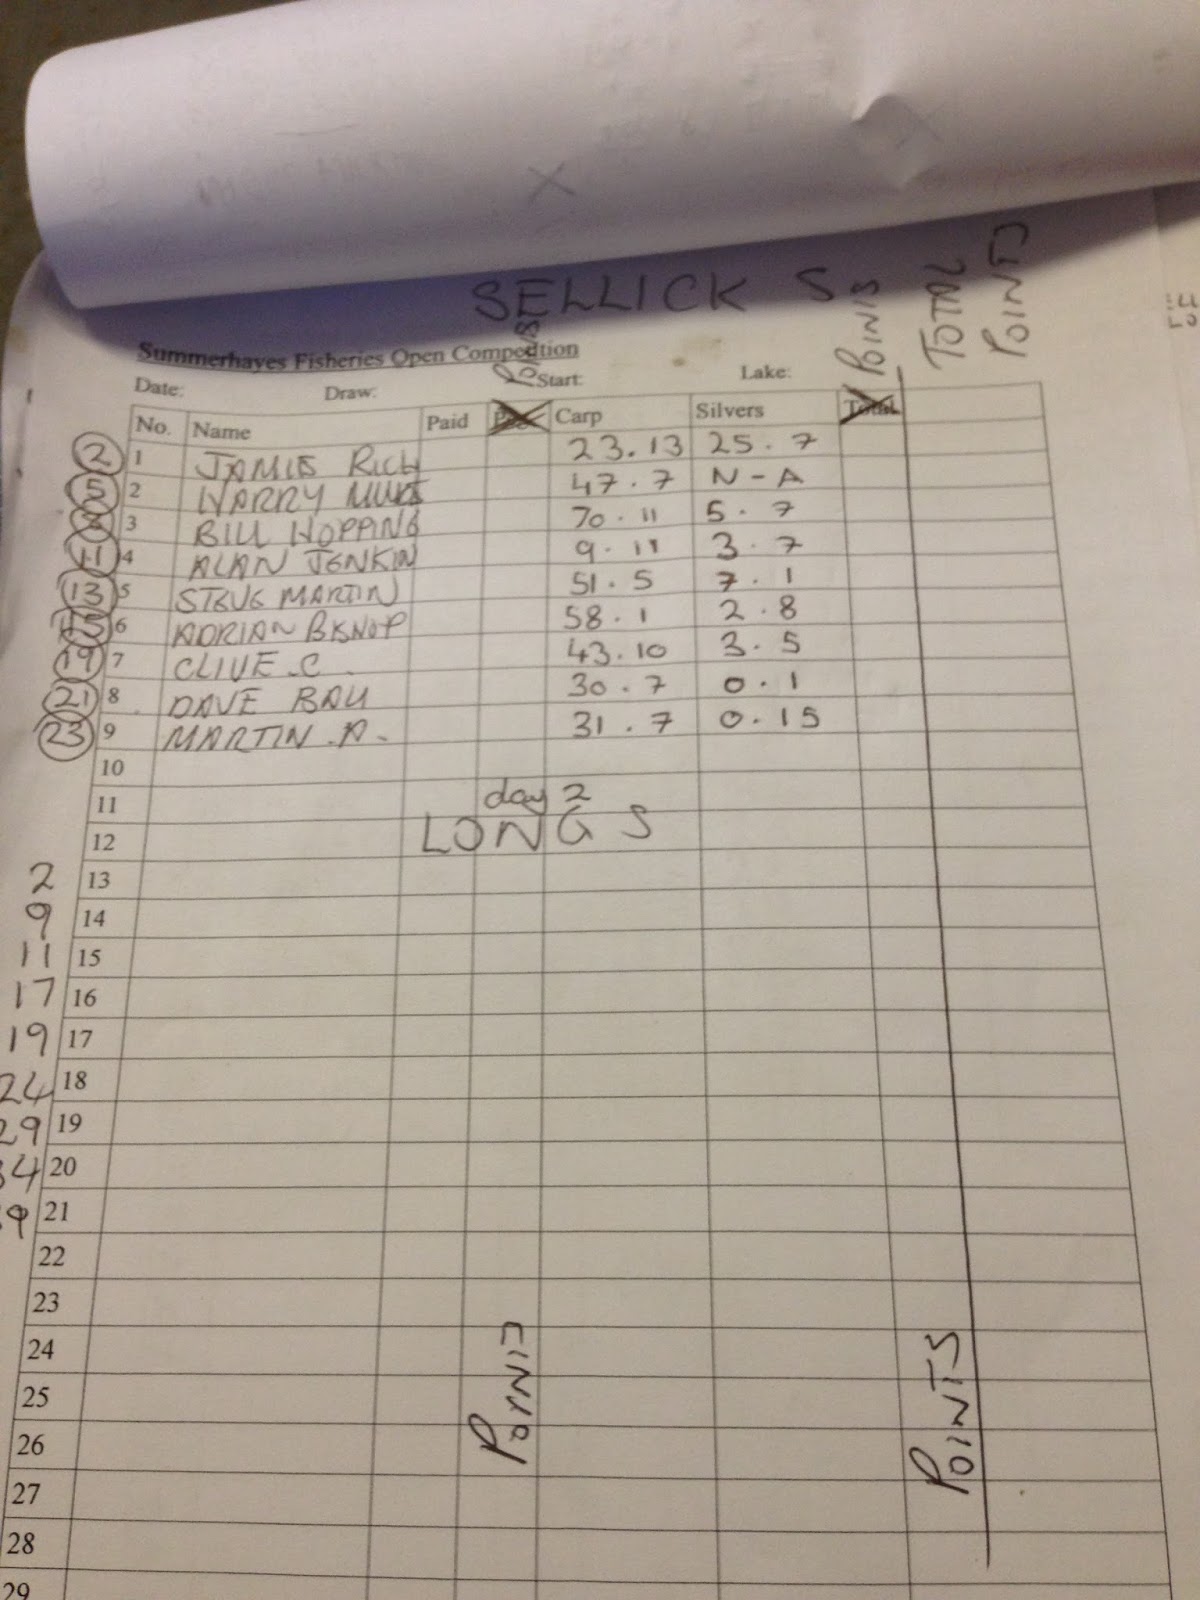 SELLICK S
Summerhayes Fisheries Open Competition
Date: Draw: Start: Lake:
Points POINTS TOTAL POINTS
No. Name Paid Carp Silvers Total
2 1 JAMIE RICH 23.13 25.7
5 2 HARRY 47.7 N-A
3 BILL HOPPING 70.11 5.7
11 4 ALAN JENKIN 9.11 3.7
13 5 STEVE MARTIN 51.5 7.1
6 ADRIAN BISHOP 58.1 2.8
19 7 CLIVE.C. 43.10 3.5
21 8 DAVE BALL 30.7 0.1
23 9 MARTIN.A. 31.7 0.15
10
11 day 2
12 LONG S
2 13
9 14
11 15
17 16
19 17
24 18
29 19
34 20
39 21
22
23
24
25
26
27
28
29
POINTS
POINTS